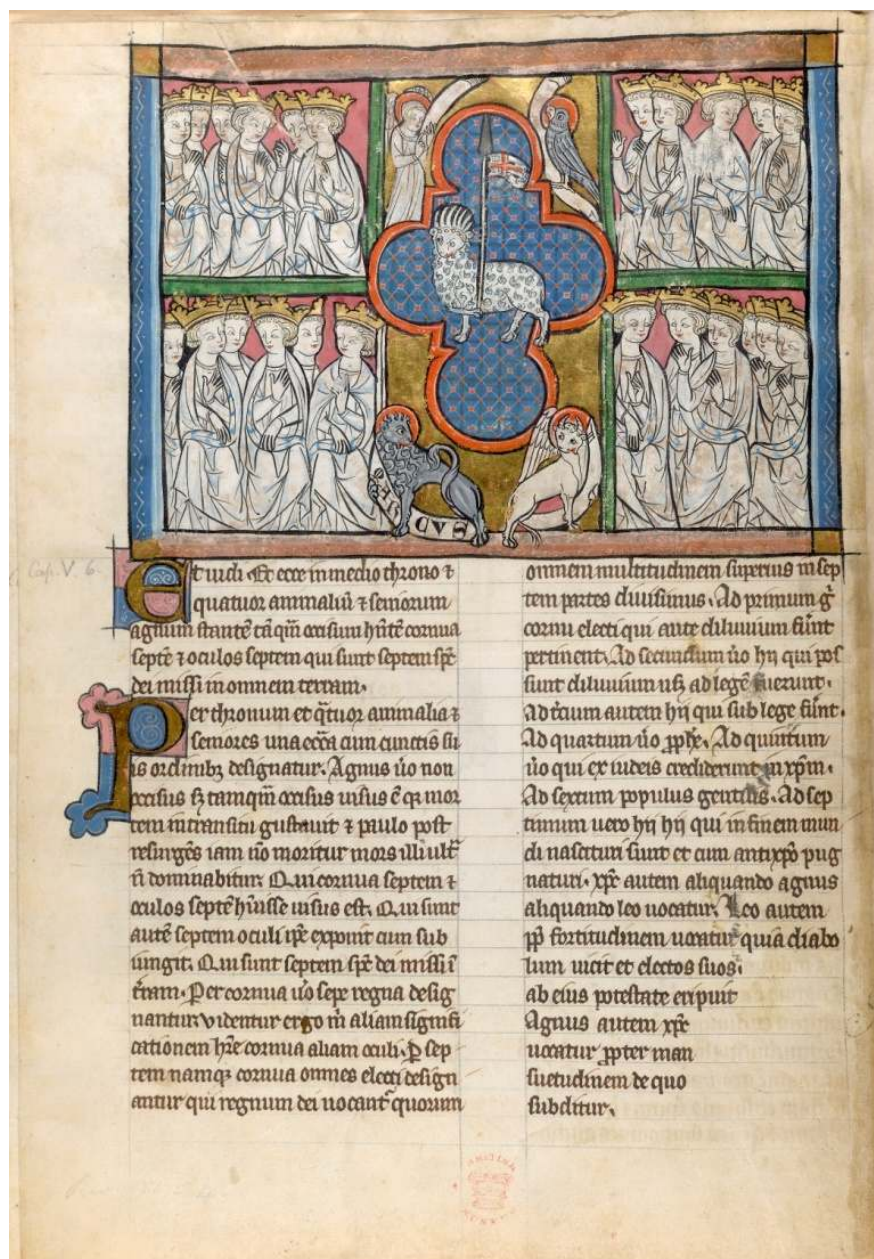 CVS
Cap. V. 6.
Et uidi. Et ecce in medio throno ⁊
quatuor animaliū ⁊ seniorum
agnum stantē tāqm̄ occisum hn̄tē cornua
septē ⁊ oculos septem qui sunt septem sp̄c
dei missi in omnem terram.
Per thronum et q̄tuor animalia ⁊
seniores una ecc̄a cum cunctis su
is ordinibꝫ designatur. Agnus ūo non
occisus sꝫ tamqm̄ occisus uisus ē qꝛ mor
tem in transitu gustauit ⁊ paulo post
resurgēs iam nō moritur mors illi ult̄
n̄ dominabitur. Qui cornua septem ⁊
oculos septē h̄uisse uisus est. Qui sunt
autē septem oculi ip̄e exponit cum sub
iungit. Qui sunt septem sp̄c dei missi ī
t̄ram. Per cornua ūo sepe regna desig
nantur videntur ergo m̄ aliam signifi
cationem hr̄e cornua aliam oculi. Ꝑ sep
tem namqꝫ cornua omnes electi design
antur qui regnum dei uocant᷑ quorum
omnem multitudinem superius in sep
tem partes diuisimus. Ad primum g̊
cornu electi qui ante diluuium fūnt
pertinent. Ad secundum ūo hij qui pos
sunt diluuium usqꝫ ad legē fuerunt.
Ad t̄cium autem hij qui sub lege fūnt.
Ad quartum ūo ꝓph̄e. Ad quintum
ūo qui ex iudeis crediderunt in xp̄m.
Ad sextum populus gentilis. Ad sep
timum uero hij hij qui in finem mun
di nascituri sunt et cum antixp̄o pug
naturi. xp̄c autem aliquando agnus
aliquando leo uocatur. Leo autem
pp̄ fortitudinem uocatur quia diabo
lum uicit et electos suos.
ab eius potestate eripuit
Agnus autem xp̄c
uocatur ꝓpter man
suetudinem de quo
subditur.